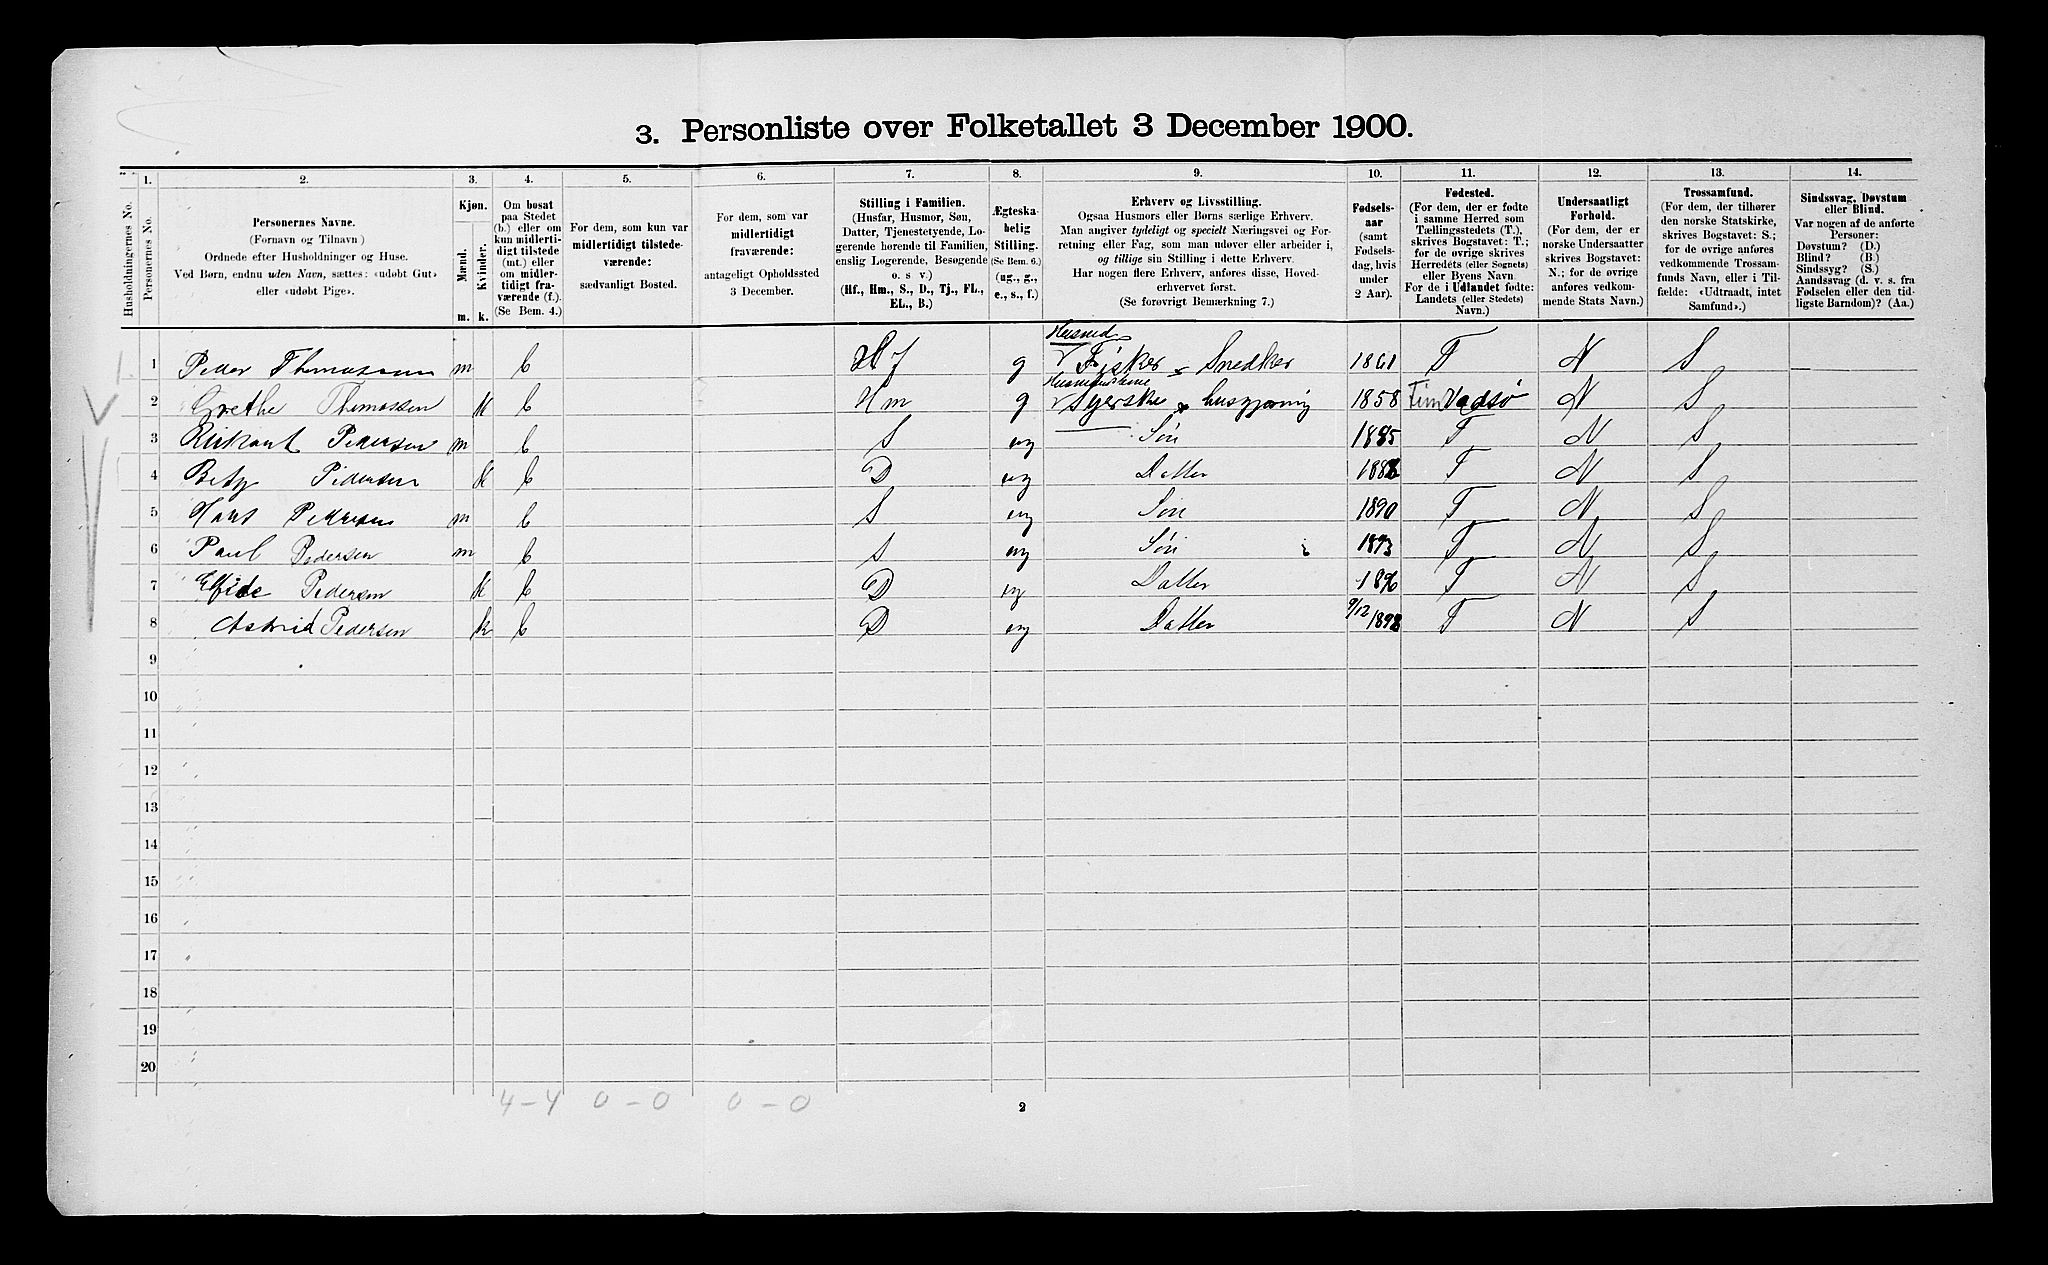 3. Personliste over Folketallet 3 December 1900.
Husholdningernes No.
1. Personernes No.
2. Personernes Navne. (Fornavn og Tilnavn) Ordnede efter Husholdninger og Huse. Ved Børn, endnu uden Navn, sættes: «udøbt Gut» eller «udøbt Pige».
3. Kjøn. Mænd. m. Kvinder. k.
4. Om bosat paa Stedet (b.) eller om kun midlertidigt tilstede (mt.) eller om midlertidigt fraværende (f.) (Se Bem. 4.)
5. For dem, som kun var midlertidigt tilstedeværende: sædvanligt Bosted.
6. For dem, som var midlertidigt fraværende: antageligt Opholdssted 3 December.
7. Stilling i Familien. (Husfar, Husmor, Søn, Datter, Tjenestetyende, Logerende hørende til Familien, enslig Logerende, Besøgende o. s v.) (Hf., Hm., S., D., Tj., FL., EL., B.)
8. Ægteskabelig Stilling. (Se Bem. 6.) (ug., g., e., s., f.)
9. Erhverv og Livsstilling. Ogsaa Husmors eller Børns særlige Erhverv. Man angiver tydeligt og specielt Næringsvei og Forretning eller Fag, som man udøver eller arbeider i, og tillige sin Stilling i dette Erhverv. Har nogen flere Erhverv, anføres disse, Hovederhvervet først. (Se forøvrigt Bemærkning 7.)
10. Fødselsaar (samt Fødselsdag, hvis under 2 Aar).
11. Fødested. (For dem, der er fødte i samme Herred som Tællingsstedets (T.), skrives Bogstavet: T.; for de øvrige skrives Herredéts (eller Sognets) eller Byens Navn For de i Udlandet fødte: Landets (eller Stedets) Navn.)
12. Undersaatligt Forhold. (For dem, der er norske Undersaatter skrives Bogstavet: N.; for de øvrige anføres vedkommende Stats Navn.)
13. Trossamfund. (For dem, der tilhører den norske Statskirke, skrives Bogstavet: S.; for de øvrige anføres vedkommende Trossamfunds Navn, eller i Tilfælde: «Udtraadt, intet Samfund».)
14. Sindssvag, Døvstum eller Blind. Var nogen af de anførte Personer: Døvstum? (D.) Blind? (B.) Sindssyg? (S.) Aandssvag (d. v. s. fra Fødselen eller den tidligste Barndom)? (Aa.)
1 Peder Thomassen m b Hf g Fisker Snedker 1861 T N S
2 Grethe Thomassen k b Hm g Syerske husgjerning 1858 Vadsø N S
3 Pedersen m b S ug Søn 1885 T N S
4 Betzy Pedersen k b D ug Datter 1888 T N S
5 Hans Pedersen m b S ug Søn 1890 T N S
6 Paul Pedersen m b S ug Søn 1893 T N S
7 Pedersen k b D ug Datter 1896 T N S
8 Astrid Pedersen k b D ug Datter 9/12 1898 T N S
9
10
11
12
13
14
15
16
17
18
19
20
4-4 0-0 0-0
2